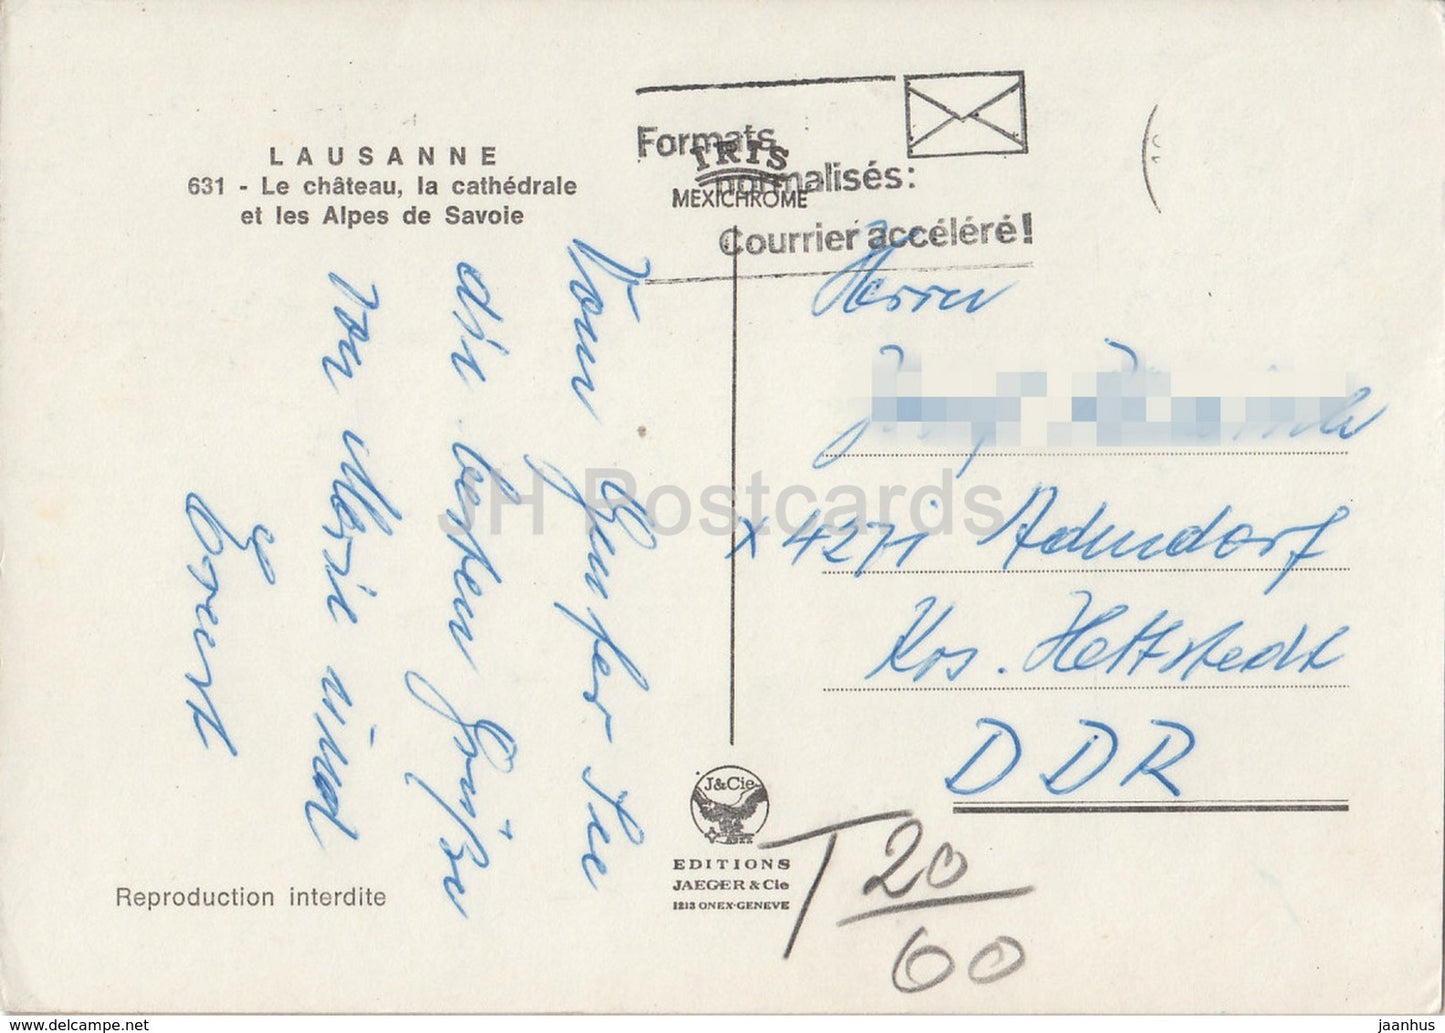 LAUSANNE
631 - Le château, la cathédrale
et les Alpes de Savoie
Formats
normalisés:
Courrier accéléré!
IRIS
MEXICHROME
Vom Genfer See
die besten Grüße
von Marie und
Ernst
Herrn
X 4271
Krs. Hettstedt
DDR
J&Cie
EDITIONS
JAEGER & Cie
1213 ONEX-GENEVE
T 20
60
Reproduction interdite
JH Postcards
delcampe.net
jaanhus